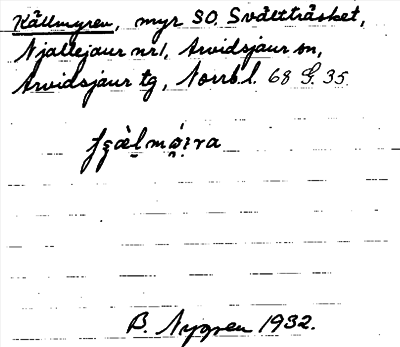 Källmyren, myr SO. Svältträsket,
Njallejaur nr 1, Arvidsjaur sn,
Arvidsjaur tg, Norrb. l. 68 G. 35.
B. Nygren 1932.